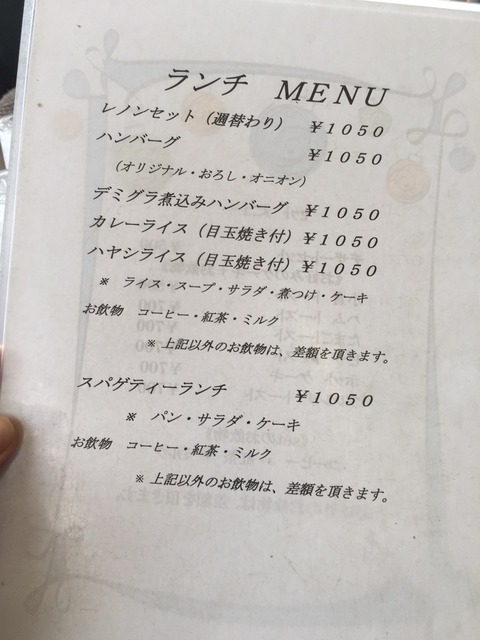 ランチ MENU
レノンセット（週替わり） ￥1050
ハンバーグ ￥1050
（オリジナル・おろし・オニオン）
デミグラ煮込みハンバーグ ￥1050
カレーライス（目玉焼き付） ￥1050
ハヤシライス（目玉焼き付） ￥1050
※ ライス・スープ・サラダ・煮つけ・ケーキ
お飲物 コーヒー・紅茶・ミルク
※上記以外のお飲物は、差額を頂きます。
スパゲティーランチ ￥1050
※ パン・サラダ・ケーキ
お飲物 コーヒー・紅茶・ミルク
※上記以外のお飲物は、差額を頂きます。